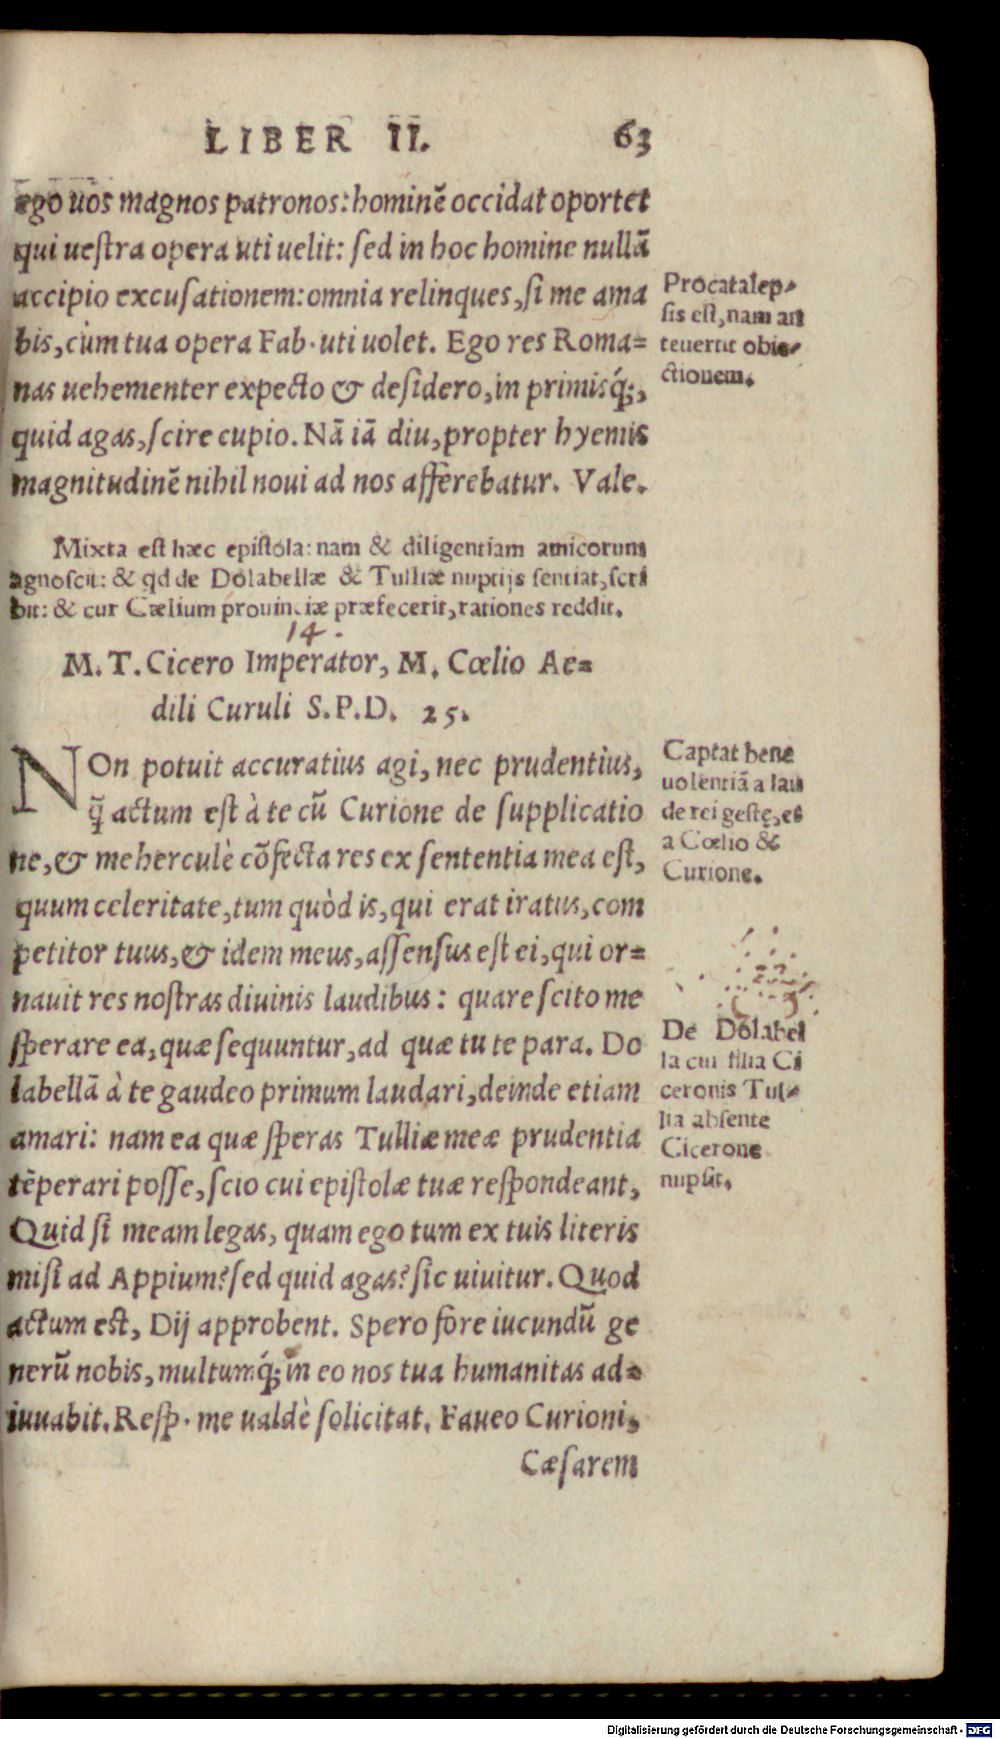 LIBER II. 63
ego uos magnos patronos: hominē occidat oportet
qui uestra opera uti uelit: sed in hoc homine nullā
accipio excusationem: omnia relinques, si me ama
bis, cùm tua opera Fab. uti uolet. Ego res Roma=
nas uehementer expecto & desidero, in primisq́;,
quid agas, scire cupio. Nā iā diu, propter hyemis
magnitudinē nihil noui ad nos afferebatur. Vale.
Procatalep-
sis est, nam an
teuertit obie-
ctionem.
Mixta est hæc epistola: nam & diligentiam amicorum
agnoscit: & qd de Dolabellæ & Tulliæ nuptijs sentiat, scri
bit: & cur Cælium prouinciæ præfecerit, rationes reddit.
14.
M. T. Cicero Imperator, M. Cœlio Ae=
dili Curuli S.P.D. 25.
NOn potuit accuratius agi, nec prudentius,
q̄ actum est à te cū Curione de supplicatio
ne, & meherculè cōfecta res ex sententia mea est,
quum celeritate, tum quòd is, qui erat iratus, com
petitor tuus, & idem meus, assensus est ei, qui or=
nauit res nostras diuinis laudibus: quare scito me
sperare ea, quæ sequuntur, ad quæ tu te para. Do
labellā à te gaudeo primum laudari, deinde etiam
amari: nam ea quæ speras Tulliæ meæ prudentia
tēperari posse, scio cui epistolæ tuæ respondeant,
Quid si meam legas, quam ego tum ex tuis literis
misi ad Appium? sed quid agas? sic uiuitur. Quod
actum est, Dij approbent. Spero fore iucundū ge
nerū nobis, multumq́; in eo nos tua humanitas ad=
iuuabit. Resp. me ualdè solicitat. Faueo Curioni,
Cæsarem
Captat bene
uolentiā a lau
de rei gestę, es
a Cœlio &
Curione.
De Dolabel
la cui filia Ci
ceronis Tul-
lia absente
Cicerone
nupsit.
Digitalisierung gefördert durch die Deutsche Forschungsgemeinschaft - DFG